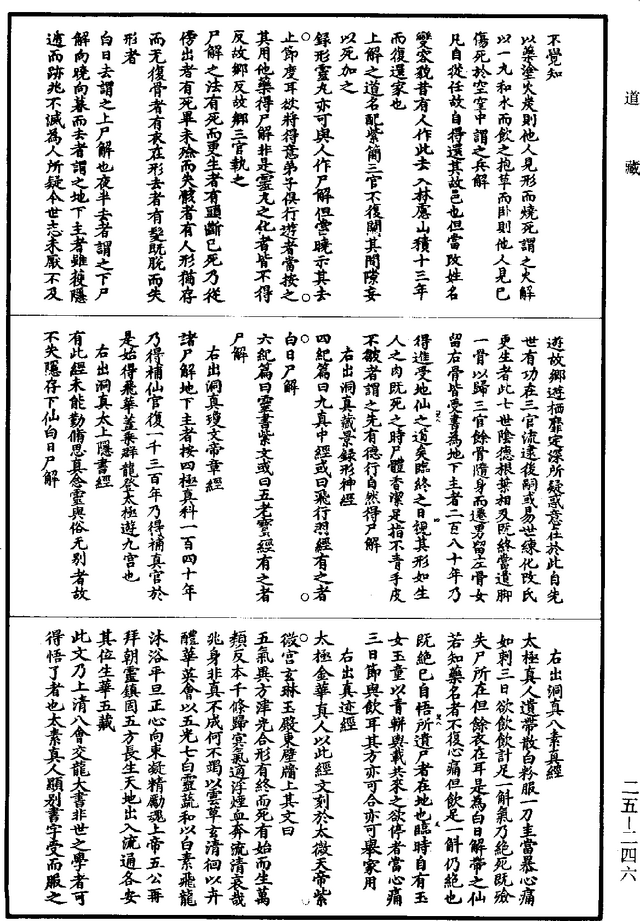 道藏
不覺知
以藥塗火炭則他人見形而燒死謂之火解
以一丸和水而飲之抱草而卧則他人見已
傷死於空室中謂之兵解
凡自從任故自得還其故邑也但當改姓名
變容貌昔有人作此去入林慮山積十三年
而復還家也
上解之道名配紫簡三官不復關其間隙妄
以死加之
錄形靈丸亦可與人作尸解但當曉示其去
止節度耳欲將得舊弟子俱行遊者當按之
其用他藥得尸解非是靈丸之化者皆不得
反故鄉反故鄉三官執之
尸解之法有死而更生者有頭斷已死乃從
傍出者有死畢未殮而失骸者有人形猶存
而无復骨者有衣在形去者有髮既脫而失
形者
白日去謂之上尸解也夜半去者謂之下尸
解向曉向暮而去者謂之地下主者雖獲隱
遁而跡兆不滅為人所疑令世志未厭不及
遊故鄉遊栖靡定深所疑惑意在於此自先
世有功在三官流逮後嗣或易世練化改氏
更生者此七世陰德根葉相及既終當遺脚
一骨以歸三官餘骨隨身而遷男留左骨女
留右骨皆受書為地下主者二百八十年乃
得進受地仙之道矣臨終之日視其形如生
人之肉既死之時尸體香潔足指不青手皮
不皺者謂之先有德行自然得尸解
右出洞真藏景錄形神經
四紀篇曰九真中經或曰飛行羽經有之者
白日尸解
六紀篇曰靈書紫文或曰五老寶經有之者
尸解
右出洞真瓊文帝章經
諸尸解地下主者按四極真科一百四十年
乃得補仙官復一千三百年乃得補真官於
是始得飛華蓋乘群龍登太極遊九宮也
右出洞真太上隱書經
有此經未能勤脩思真念靈與俗无別者故
不失隱存下仙白日尸解
右出洞真八素真經
太極真人遺帶散白粉服一刀圭當暴心痛
如刺三日欲飲飲計足一斛氣乃絕死既殮
失尸所在但餘衣在耳是為白日解帶之仙
若知藥名者不復心痛但飲足一斛仍絕也
既絕已自悟所遺尸者在地也臨時自有玉
女玉童以青軿輿載共來之欲停者當心痛
三日節與飲耳其方亦可合亦可舉家用
右出真迹經
太極金華真人以此經文刻於太微天帝紫
微宮玄琳玉殿東壁牖上其文曰
五氣異方津光合形有終而死有始而生萬
類反本千條歸冥氣適浮煙血奔流清哀哉
兆身非真不成何不竭以雲草玄清徊以卉
醴華英會以五光七白靈蔬和以白素飛龍
沐浴平旦正心向東凝精勵魂上帝五公再
拜朝靈鎮固五方長生天地出入流通各安
其位生華五藏
此文乃上清八會交龍大書非世之學者可
得悟了者也太素真人顯別書字受而服之
二五—二四六